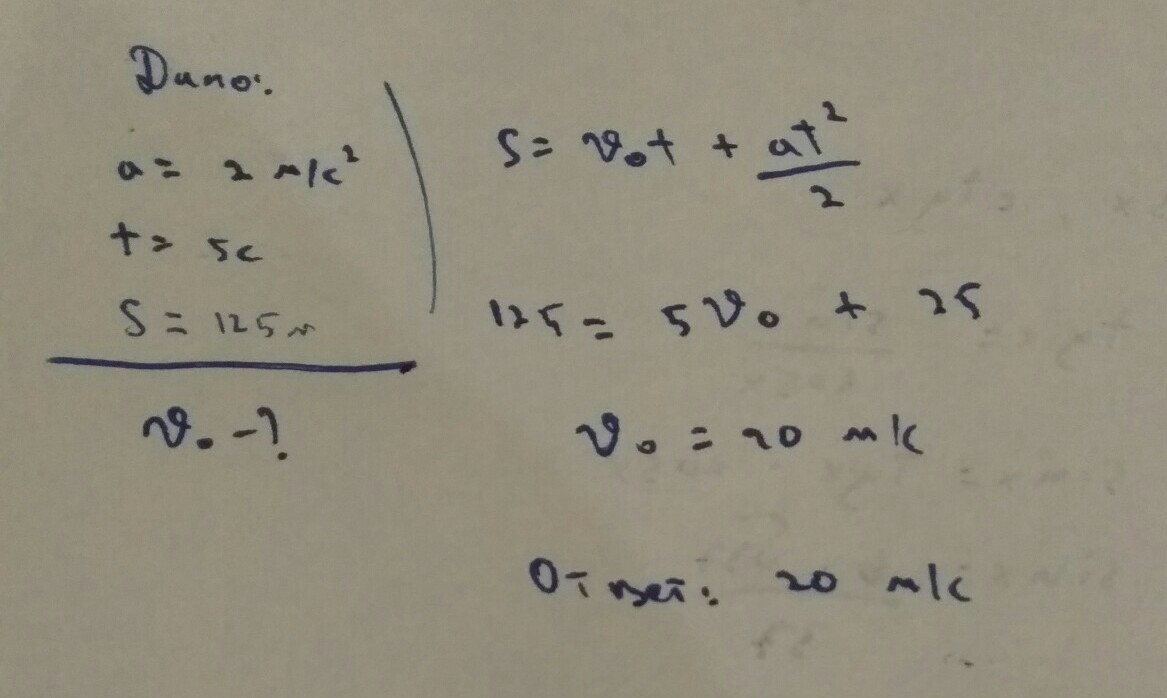 Дано:
a = 2 м/с²
t = 5с
S = 125м
v₀ - ?
S = v₀t + at²/2
125 = 5v₀ + 25
v₀ = 20 м/с
Ответ: 20 м/с